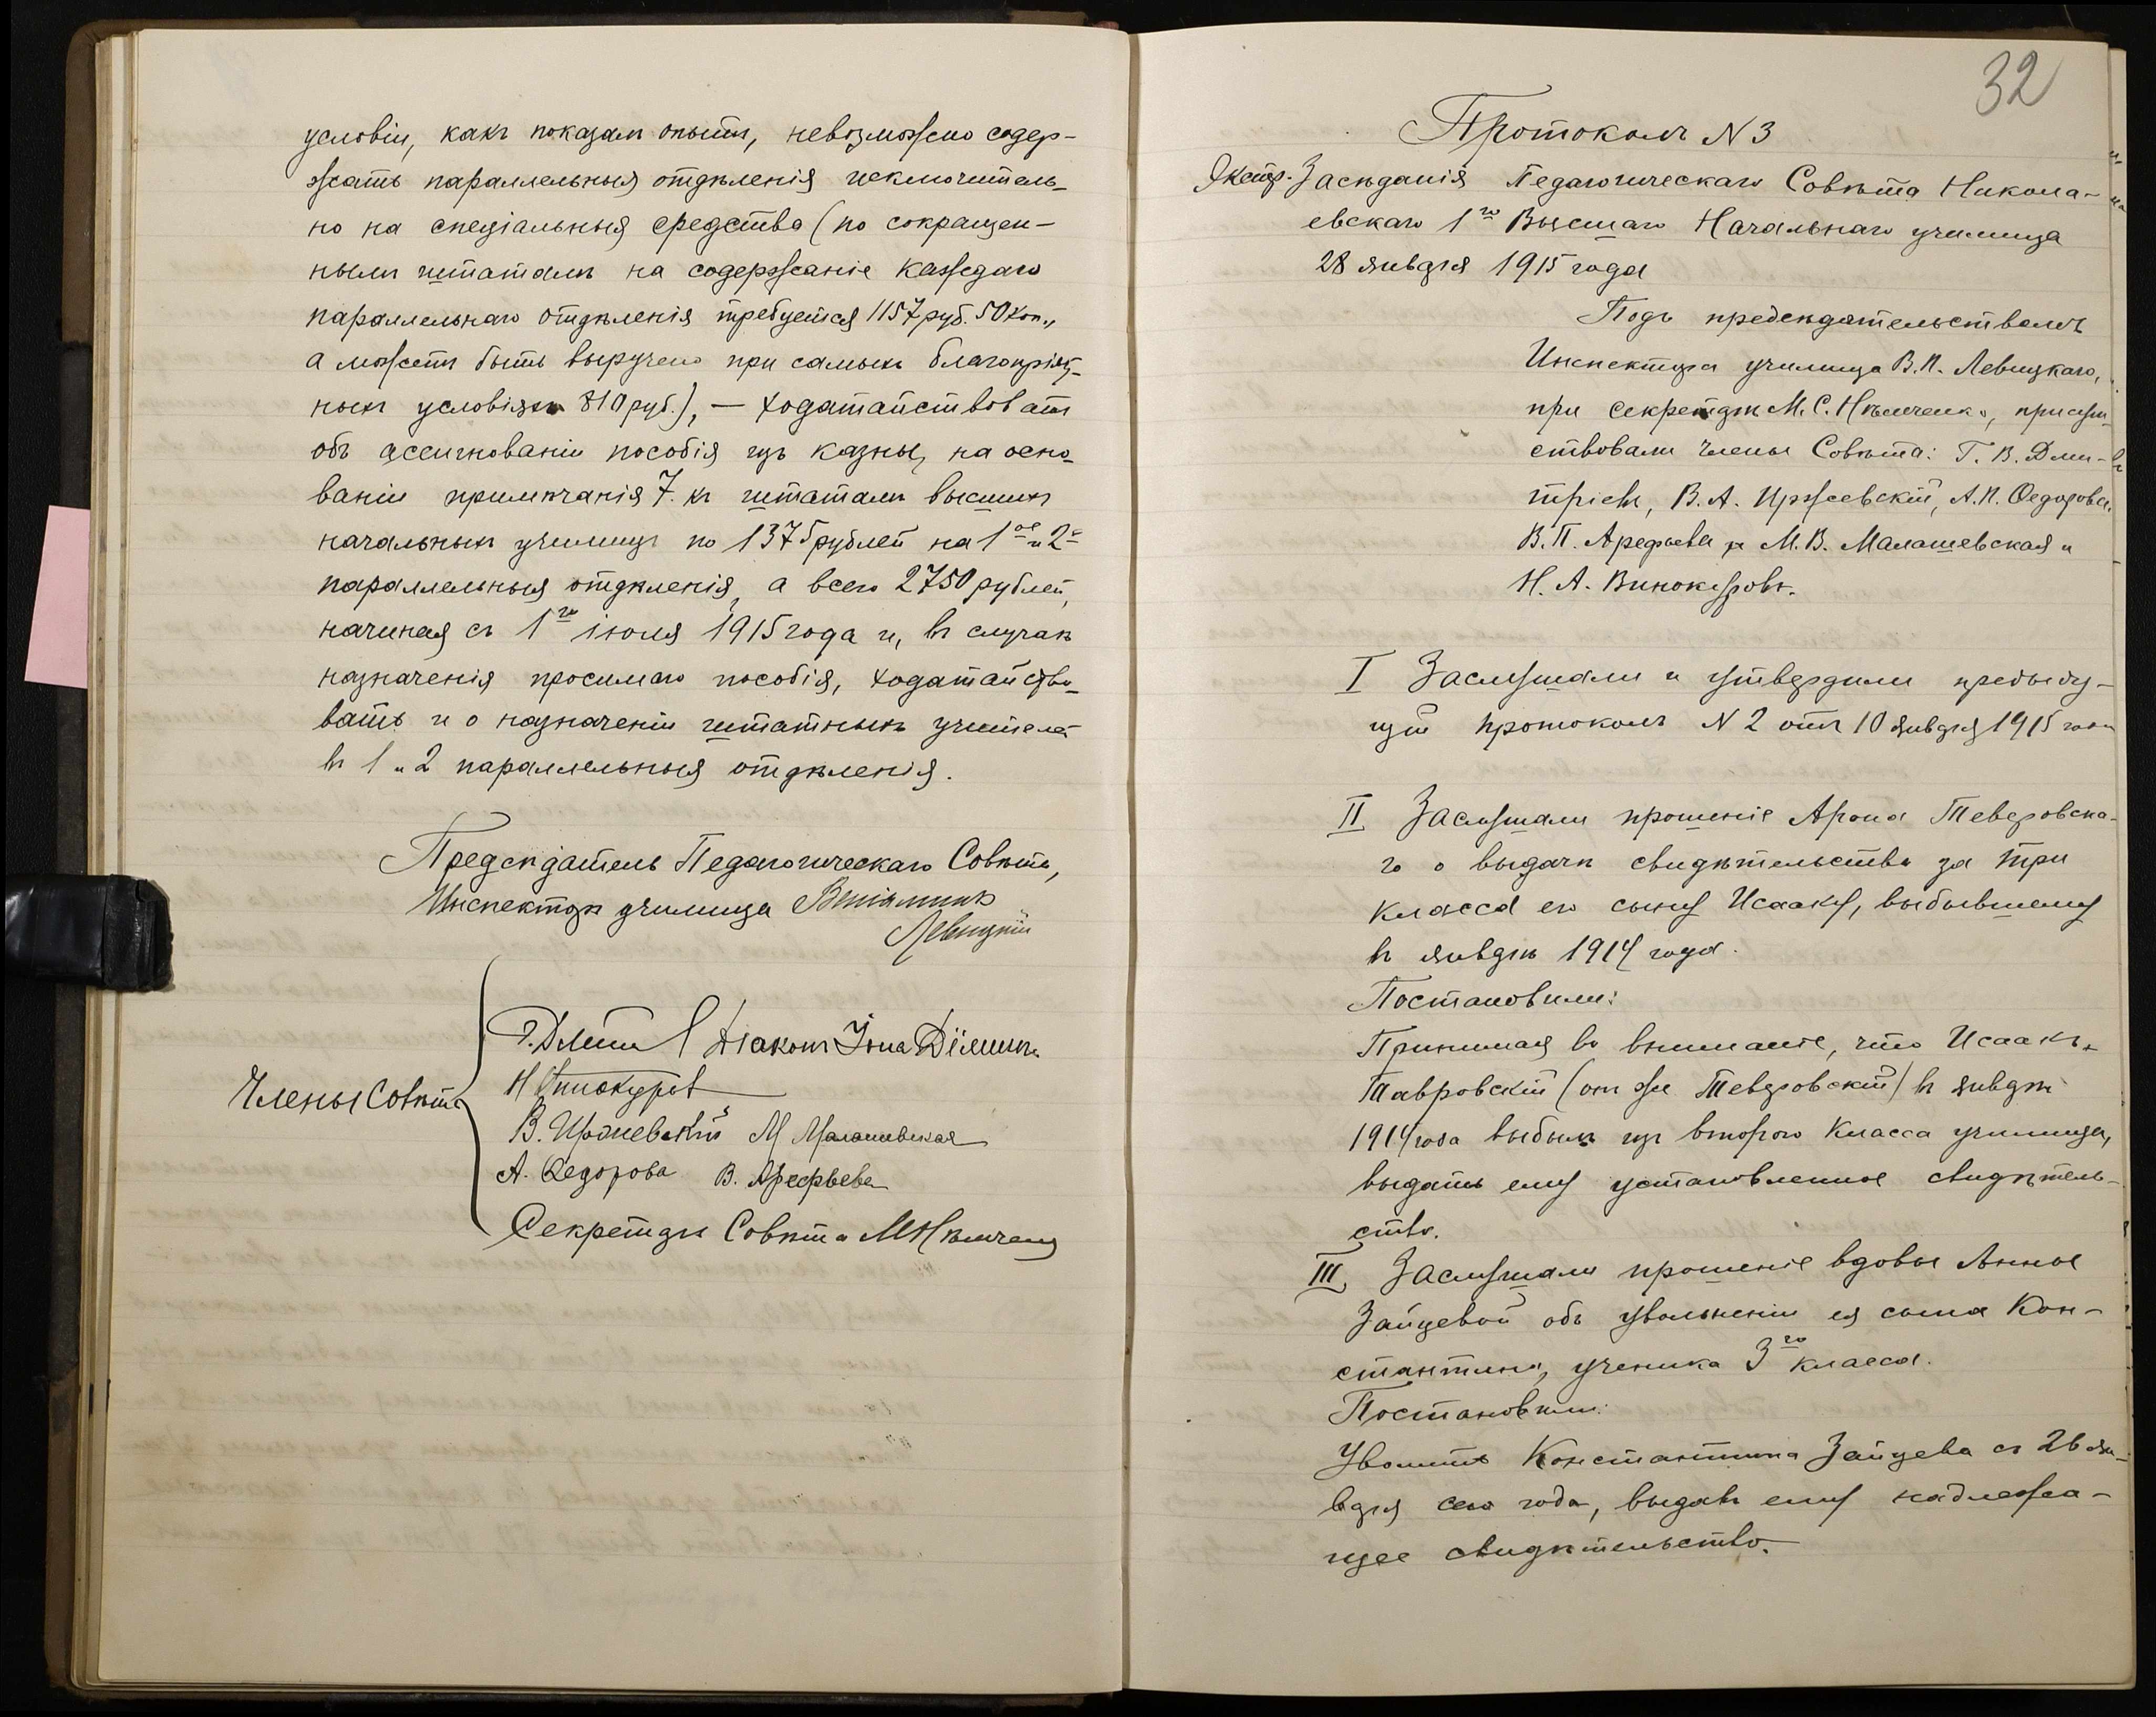 условіи, какъ показалъ опытъ, невозможно содер-
жать параллельныя отдѣленія исключитель-
но на спеціальныя средства (по сокращен-
нымъ штатамъ на содержаніе каждаго
параллельнаго отдѣленія требуется 1157 руб. 50 коп.,
а можетъ быть выручено при самыхъ благопріят-
ныхъ условіяхъ 810 руб.), — ходатайствовать
объ ассигнованіи пособія изъ казны, на осно-
ваніи примѣчанія 7. къ штатамъ высшихъ
начальныхъ училищъ по 1375 рублей на 1ое и 2е
параллельныя отдѣленія, а всего 2750 рублей,
начиная съ 1го іюля 1915 года и, въ случаѣ
назначенія просимаго пособія, ходатайство-
вать и о назначеніи штатныхъ учителей
въ 1 и 2 параллельныя отдѣленія.
Предсѣдатель Педагогическаго Совѣта,
Инспекторъ училища Веніаминъ
Левицкій
Члены Совѣта
Діаконъ Іона
Н Винокуровъ
В. Иржеевскій М Малашевская
А. Федорова В. Арефьева
Секретарь Совѣта М Нѣмченко
32
Протоколъ N 3
Экстр. Засѣданія Педагогическаго Совѣта Никола-
евскаго 1го Высшаго Начальнаго училища
28 января 1915 года
Подъ предсѣдательствомъ
Инспектора училища В.П. Левицкаго,
при секретарѣ М.С. Нѣмченко, присут-
ствовали члены Совѣта: Г. В. Дми-
тріевъ, В. А. Иржеевскій, А.П. Федорова,
В.П. Арефьева и М.В. Малашевская и
Н. А. Винокуровъ.
I Заслушали и утвердили предыду-
щій протоколъ N 2 отъ 10 января 1915 года
II Заслушали прошеніе Арона Теверовска-
го о выдачѣ свидѣтельства за три
класса его сыну Исааку, выбывшему
въ январѣ 1914 года.
Постановили:
Принимая во вниманіе, что Исаакъ
Тавровскій (онъ же Теверовскій) въ январѣ
1914 года выбылъ изъ второго класса училища,
выдать ему установленное свидѣтель-
ство.
III Заслушали прошеніе вдовы Анны
Зайцевой объ увольненіи ея сына Кон-
стантина, ученика 3го класса.
Постановили:
Уволить Константина Зайцева съ 26 ян-
варя сего года, выдавъ ему надлежа-
щее свидѣтельство.